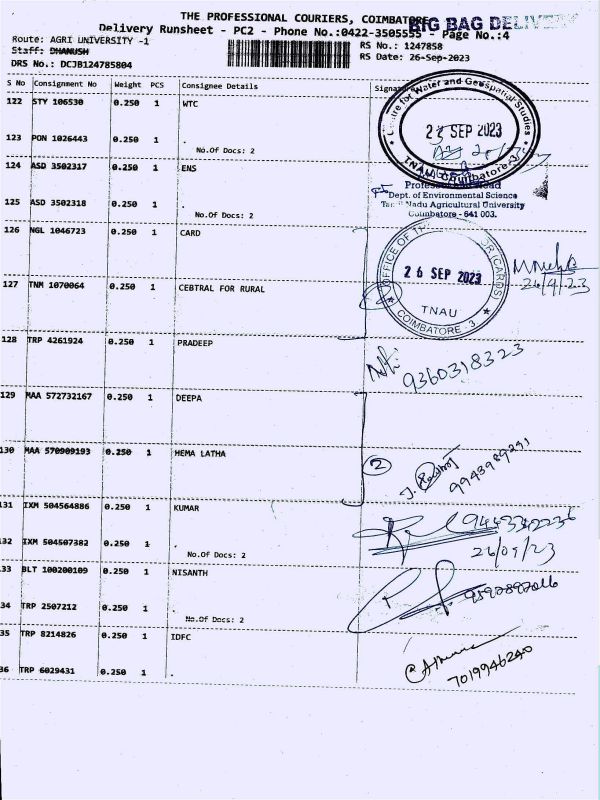 THE PROFESSIONAL COURIERS, COIMBATORE
BIG BAG DELIVERY
Delivery Runsheet - PC2 - Phone No.:0422-3505555 - Page No.:4
Route: AGRI UNIVERSITY -1
RS No.: 1247858
Staff: DHANUSH
RS Date: 26-Sep-2023
DRS No.: DCJB124785804
S No Consignment No Weight PCS Consignee Details
122 STY 106530 0.250 1 WTC
123 PON 1026443 0.250 1 .
No.Of Docs: 2
124 ASD 3502317 0.250 1 ENS
125 ASD 3502318 0.250 1 .
No.Of Docs: 2
126 NGL 1046723 0.250 1 CARD
127 TNM 1070064 0.250 1 CEBTRAL FOR RURAL
128 TRP 4261924 0.250 1 PRADEEP
129 MAA 572732167 0.250 1 DEEPA
130 MAA 570909193 0.250 1 HEMA LATHA
131 IXM 504564886 0.250 1 KUMAR
132 IXM 504507382 0.250 1 .
No.Of Docs: 2
33 BLT 100200109 0.250 1 NISANTH
34 TRP 2507212 0.250 1 .
No.Of Docs: 2
35 TRP 8214826 0.250 1 IDFC
36 TRP 6029431 0.250 1 .
Centre for Water and Geospatial Studies
SEP 2023
TNAU, Coimbatore-3
Dept. of Environmental Science
Tamil Nadu Agricultural University
Coimbatore - 641 003.
26 SEP 2023
(CARDS)
TNAU
COIMBATORE - 3
26/9/23
9360318323
2
9943989291
26/09/23
7019946240